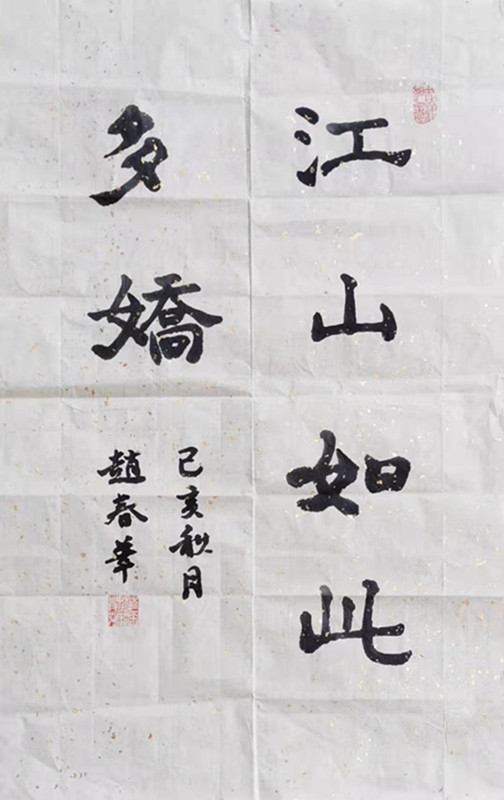 江山如此
多嬌
己亥秋月
趙春華